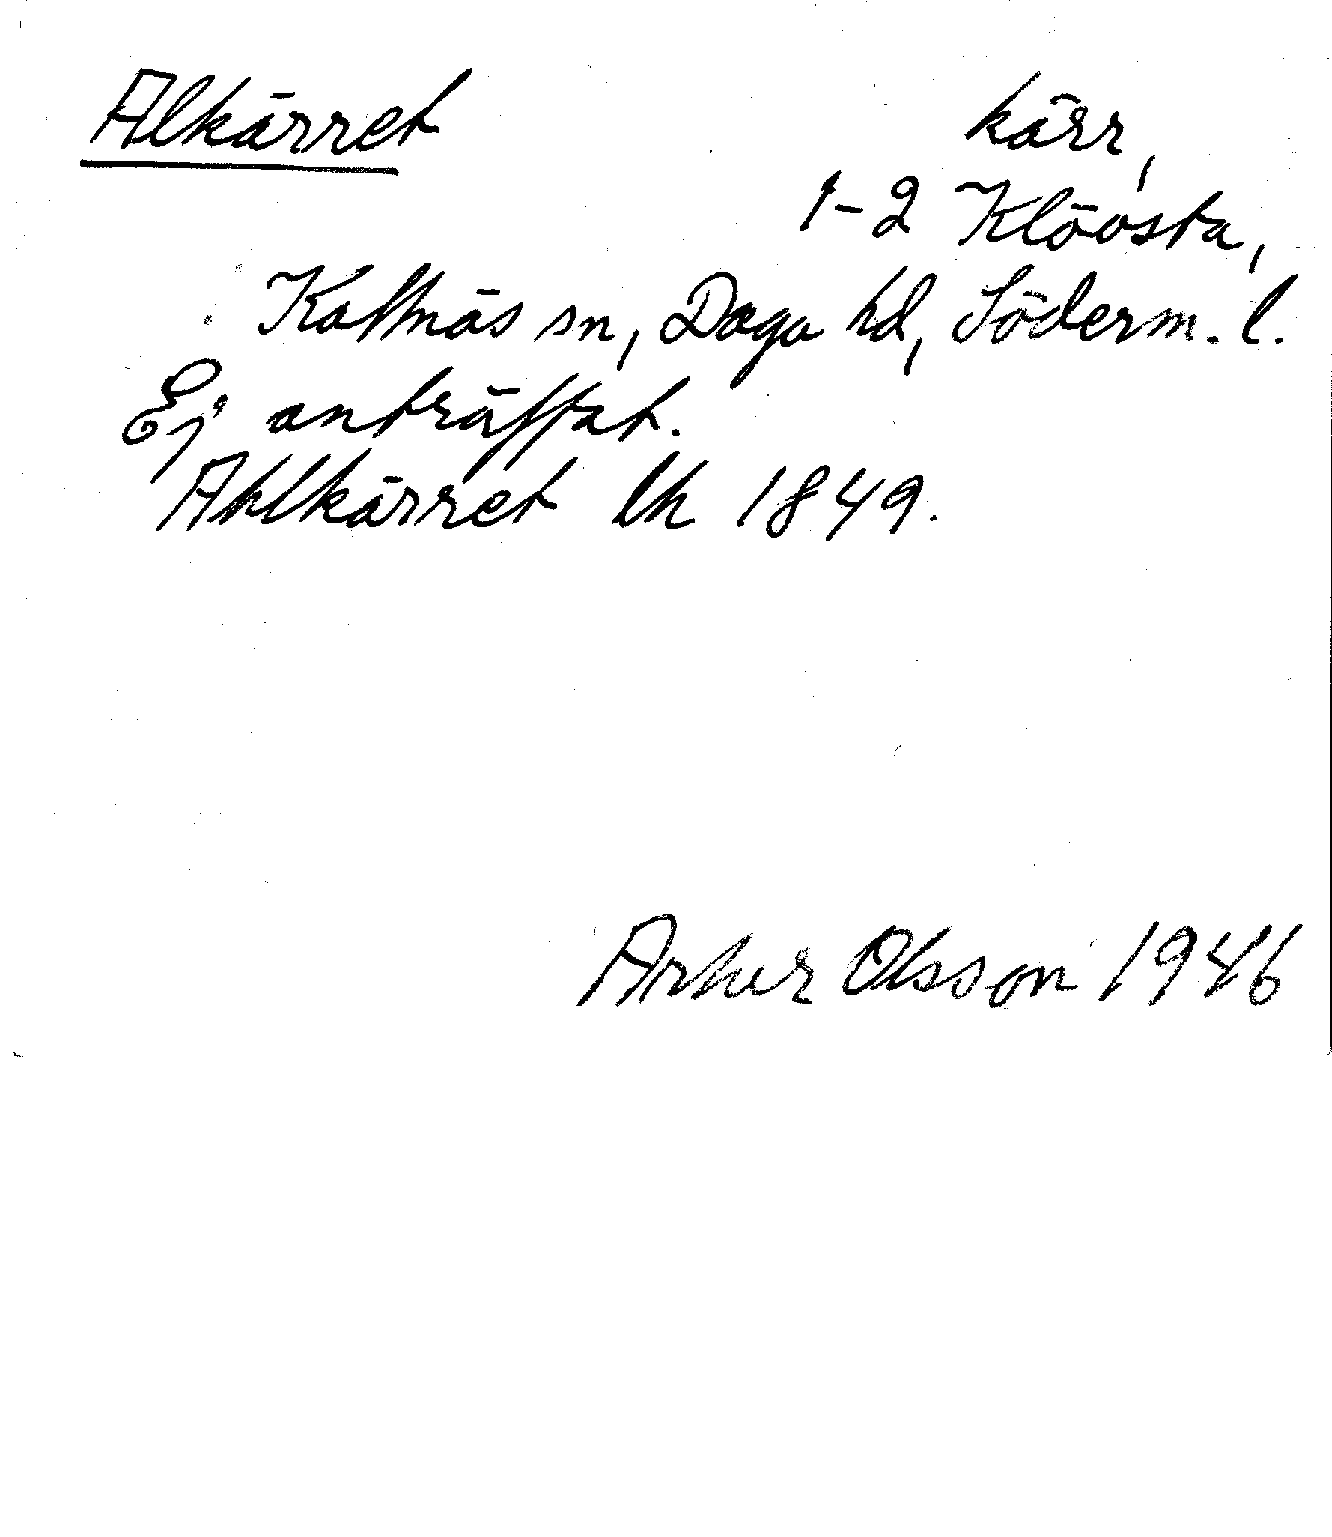 Alkärret kärr,
1-2 Klövsta,
Kattnäs sn, Daga hd, Söderm. l.
Ej anträffat.
Ahlkärret lh 1849.
Artur Olsson 1946